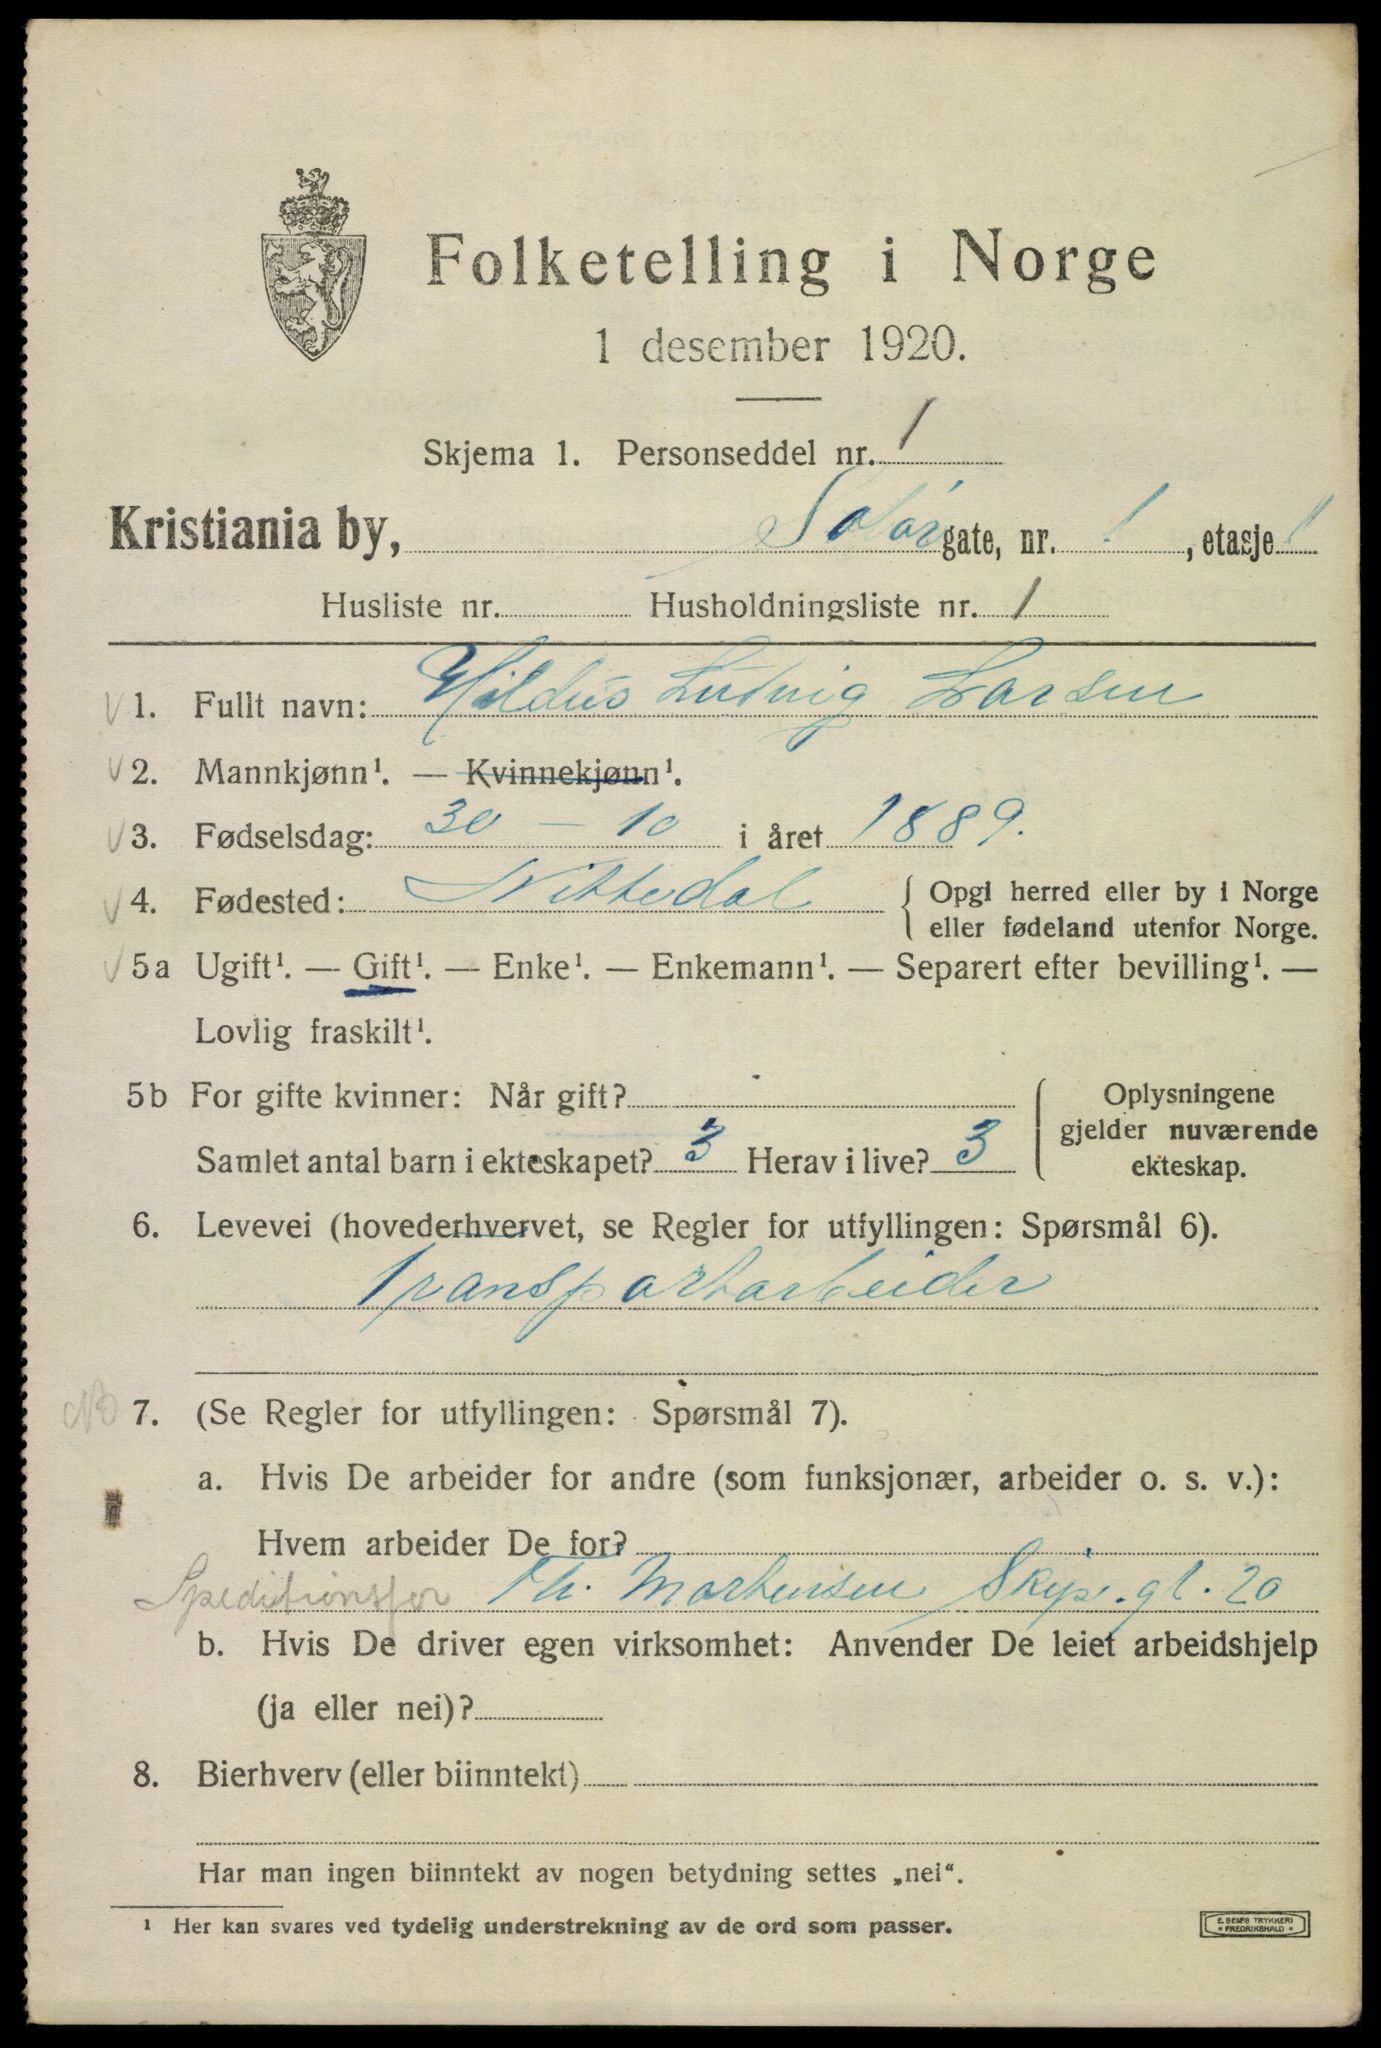 Folketelling i Norge
1 desember 1920.
Skjema 1. Personseddel nr. 1
Kristiania by, Solørgate, nr. 1, etasje 1
Husliste nr. Husholdningsliste nr. 1
1. Fullt navn: Hildus Ludvig Larsen
2. Mannkjønn¹. — Kvinnekjønn¹.
3. Fødselsdag: 30 - 10 i året 1889.
4. Fødested: Nittedal { Opgi herred eller by i Norge
eller fødeland utenfor Norge.
5a Ugift¹. — Gift¹. — Enke¹. — Enkemann¹. — Separert efter bevilling¹. —
Lovlig fraskilt¹.
5b For gifte kvinner: Når gift? { Oplysningene
gjelder nuværende
ekteskap.
Samlet antal barn i ekteskapet? 3 Herav i live? 3
6. Levevei (hovederhvervet, se Regler for utfyllingen: Spørsmål 6).
Transportarbeider
7. (Se Regler for utfyllingen: Spørsmål 7).
a. Hvis De arbeider for andre (som funksjonær, arbeider o. s. v.):
Hvem arbeider De for?
Speditionsfor Th. Mortensen Skip.gt. 20
b. Hvis De driver egen virksomhet: Anvender De leiet arbeidshjelp
(ja eller nei)?
8. Bierhverv (eller biinntekt)
Har man ingen biinntekt av nogen betydning settes „nei“.
¹ Her kan svares ved tydelig understrekning av de ord som passer.
E. SEMS TRYKKERI
FREDRIKSHALD